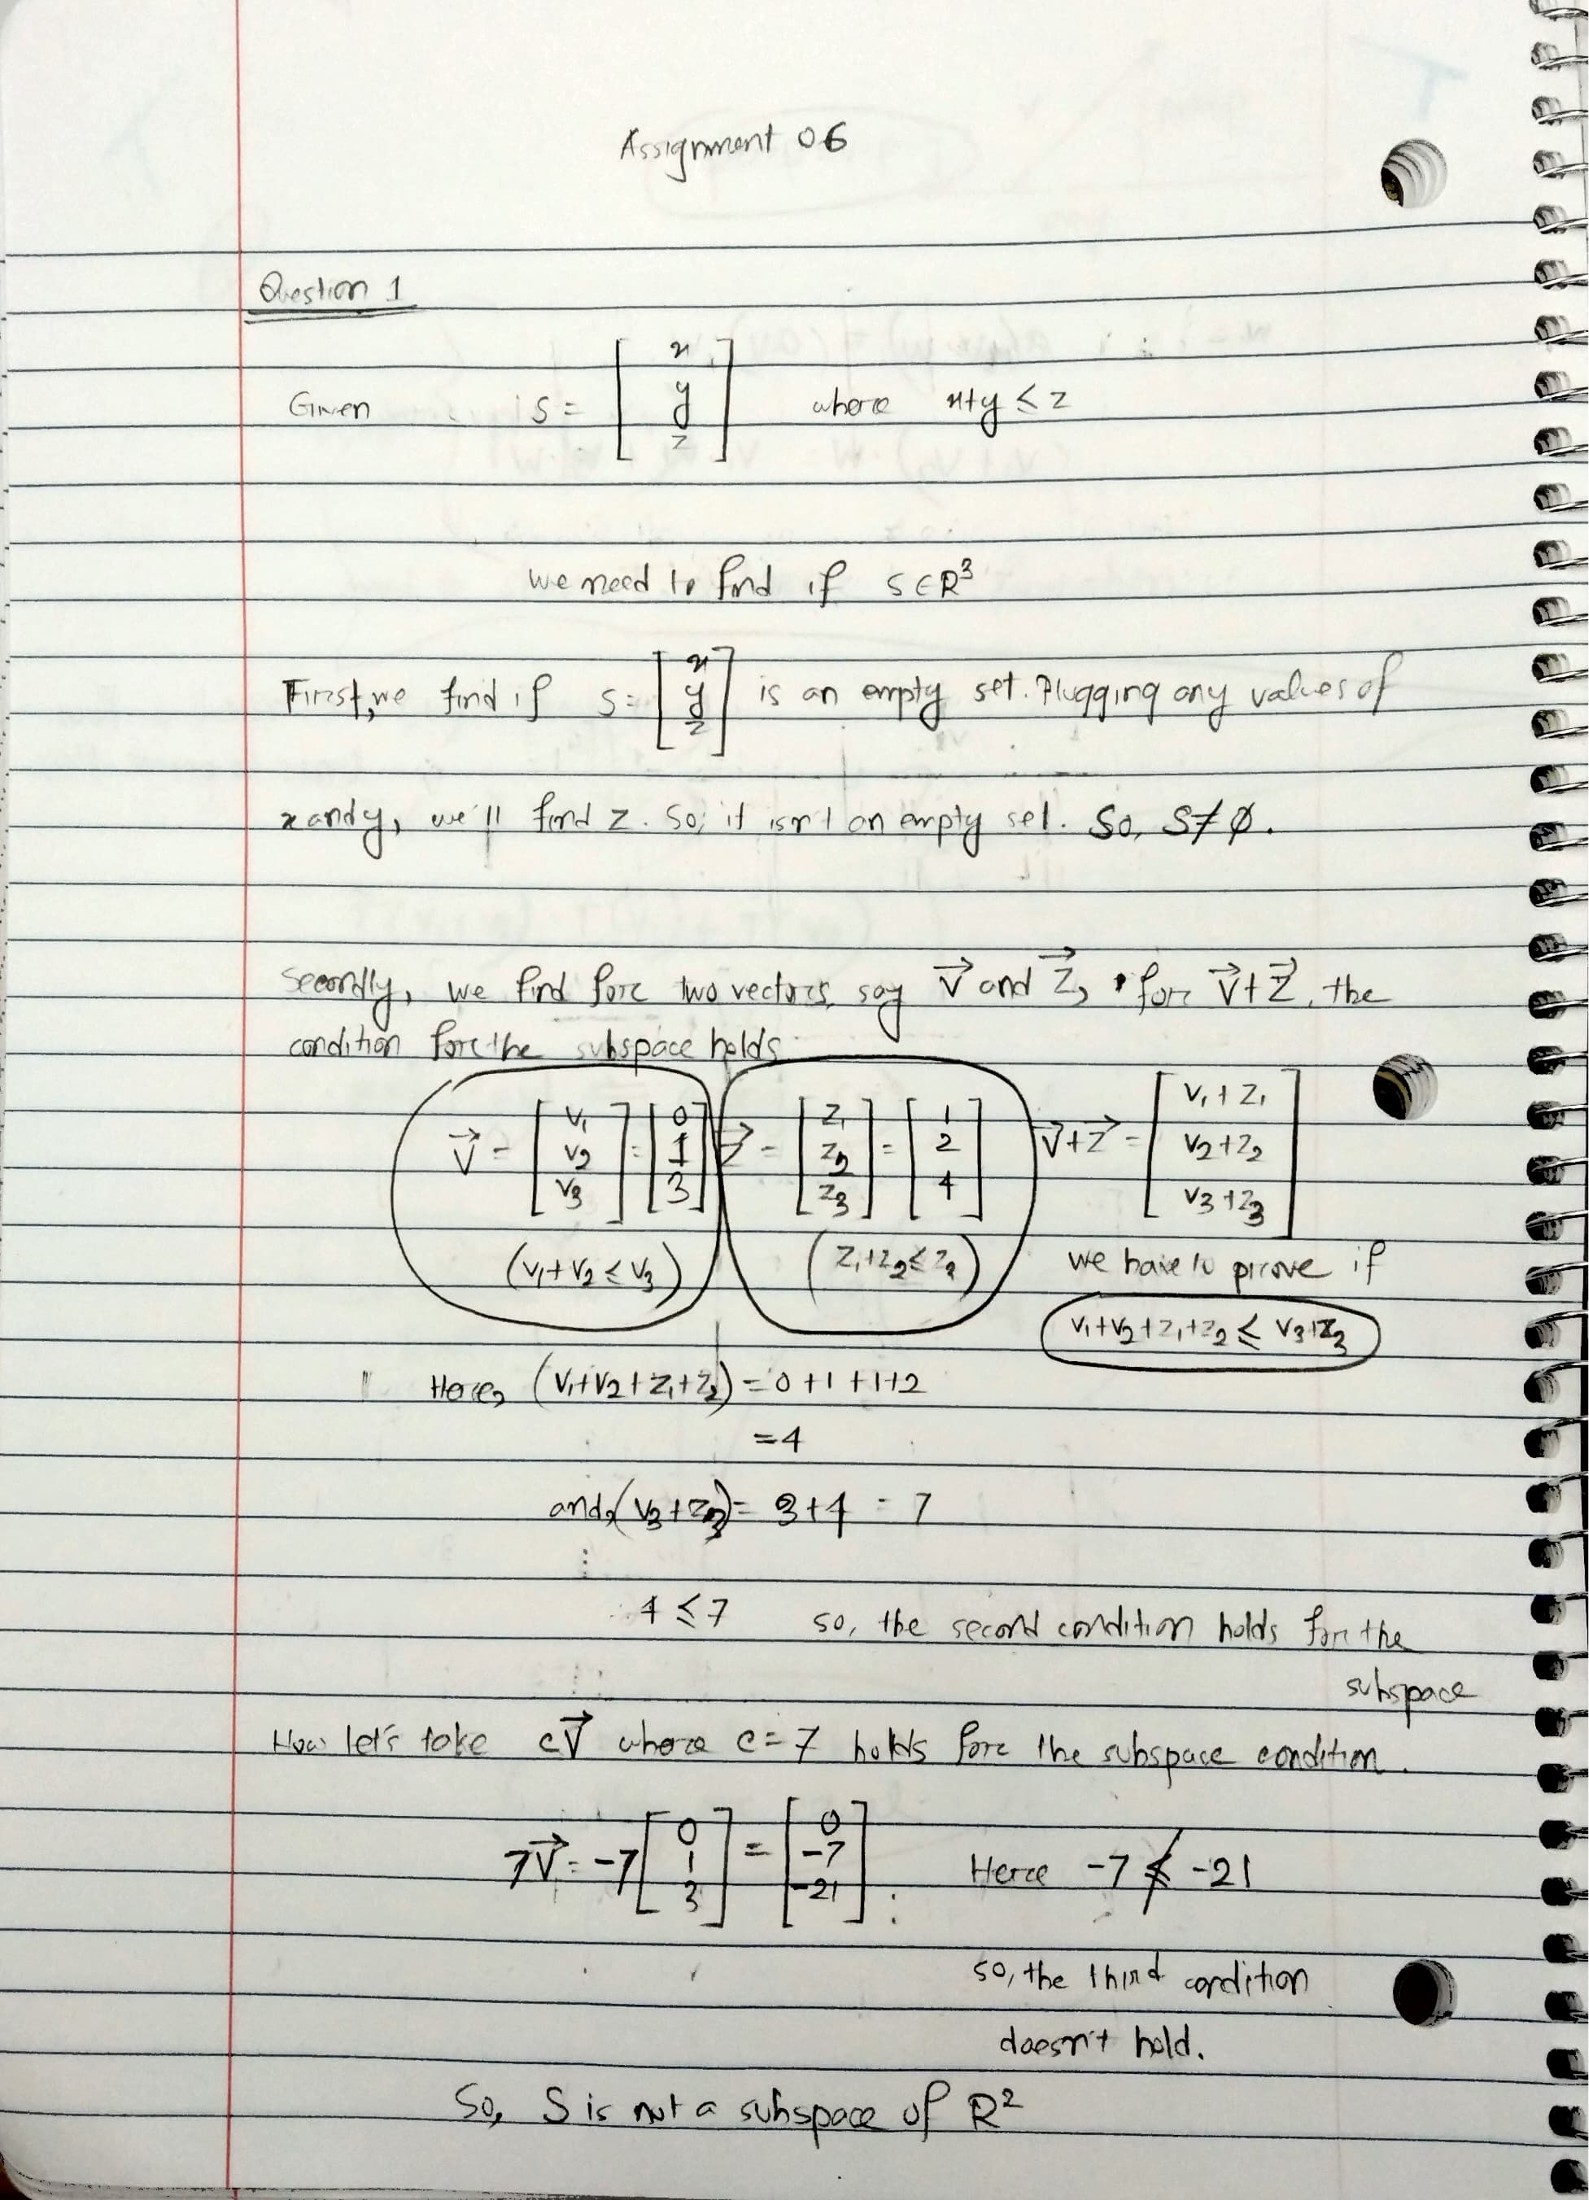 Assignment 06
Question 1
Given S = [x y z] where x+y ≤ z
we need to find if S∈R³
First, we find if S = [x y z] is an empty set. Plugging any values of
x and y, we'll find z. So, it isn't an empty set. So, S≠∅.
Secondly, we find for two vectors, say V⃗ and Z⃗, for V⃗+Z⃗, the
condition for the subspace holds
V⃗ = [V₁ V₂ V₃] = [0 1 3] Z⃗ = [Z₁ Z₂ Z₃] = [1 2 4] V⃗+Z⃗ = [V₁+Z₁ V₂+Z₂ V₃+Z₃]
(V₁+V₂ ≤ V₃) (Z₁+Z₂ ≤ Z₃) we have to prove if
V₁+V₂+Z₁+Z₂ ≤ V₃+Z₃
Here, (V₁+V₂+Z₁+Z₂) = 0+1+1+2
=4
and, (V₃+Z₃) = 3+4 = 7
4 ≤ 7 so, the second condition holds for the
subspace
Now let's take cV⃗ where c=7 holds for the subspace condition.
7V⃗ = -7[0 1 3] = [0 -7 -21] Here -7 ≰ -21
so, the third condition
doesn't hold.
So, S is not a subspace of R²